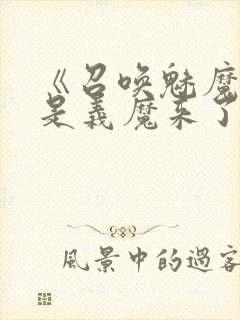 《召唤魅魔
是義魔来了
風景中的過客